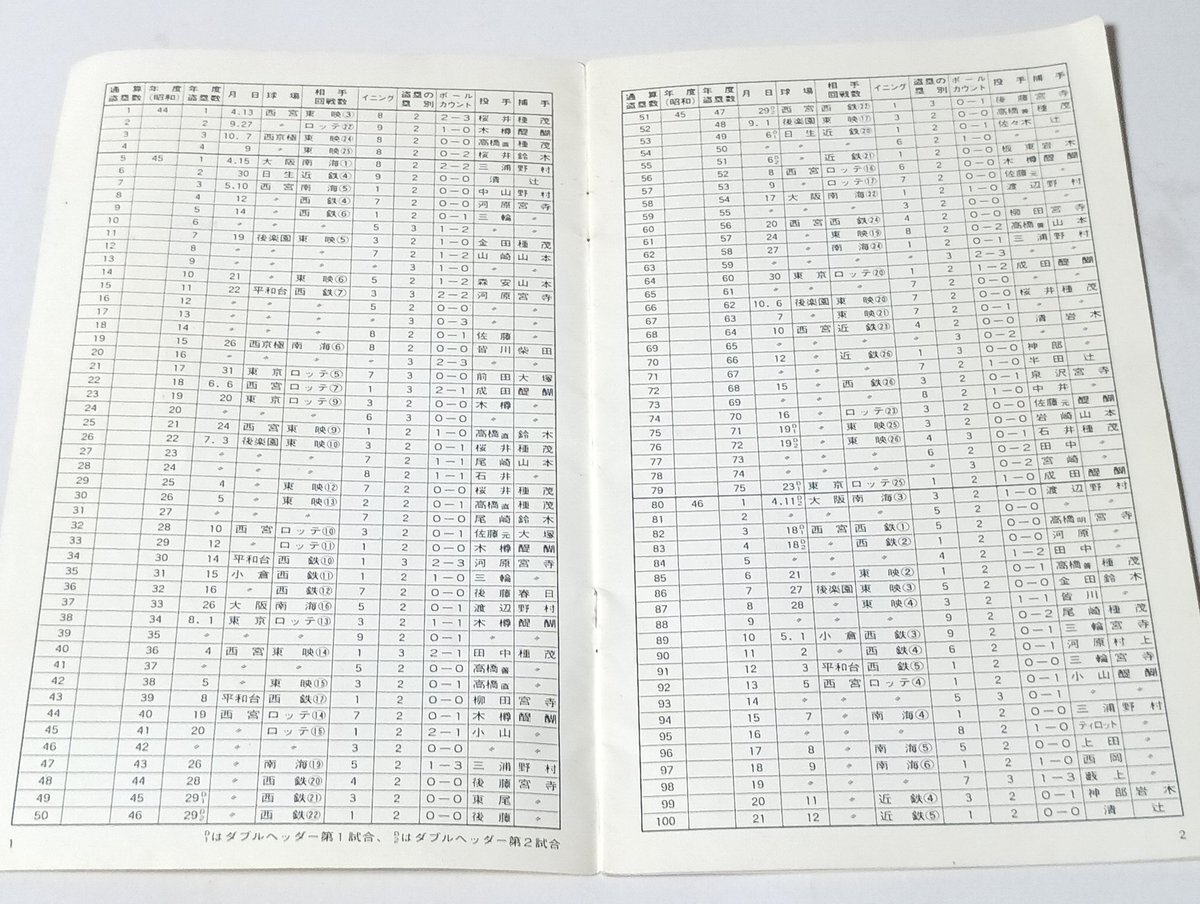 通算盗塁数 年度(昭和) 年度盗塁数 月日 球場 相手回戦数 イニング 盗塁の塁別 ボールカウント 投手 捕手
1 44 1 4.13 西宮 東映③ 8 2 2—3 桜井 種茂
2 2 9.27 〃 ロッテ㉒ 9 2 1—0 木樽 醍醐
3 3 10.7 西京極 東映㉔ 8 2 0—0 高橋直 種茂
4 4 9 〃 東映㉕ 8 2 0—2 桜井 鈴木
5 45 1 4.15 大阪 南海① 8 2 2—2 三浦 野村
6 2 30 日生 近鉄④ 9 2 0—0 清 辻
7 3 5.10 西宮 南海⑤ 1 2 0—0 中山 野村
8 4 12 〃 西鉄④ 7 2 0—0 河原 宮寺
9 5 14 〃 西鉄⑥ 1 2 0—1 三輪 〃
10 6 〃 〃 〃 5 3 1—2 〃 〃
11 7 19 後楽園 東映⑤ 3 2 1—0 金田 種茂
12 8 〃 〃 〃 7 2 1—2 山崎 山本
13 9 〃 〃 〃 〃 3 1—0 〃 〃
14 10 21 〃 東映⑥ 5 2 1—2 森安 山本
15 11 22 平和台 西鉄⑦ 3 3 2—2 河原 宮寺
16 12 〃 〃 〃 5 2 0—0 〃 〃
17 13 〃 〃 〃 〃 3 0—3 〃 〃
18 14 〃 〃 〃 8 2 0—1 佐藤 〃
19 15 26 西京極 南海⑥ 8 2 0—0 皆川 柴田
20 16 〃 〃 〃 〃 3 2—3 〃 〃
21 17 31 東京 ロッテ⑤ 7 3 0—0 前田 大塚
22 18 6.6 西宮 ロッテ⑦ 1 3 2—1 成田 醍醐
23 19 20 東京 ロッテ⑨ 3 2 0—0 木樽 〃
24 20 〃 〃 〃 6 3 0—0 〃 〃
25 21 24 西宮 東映⑨ 1 2 1—0 高橋直 鈴木
26 22 7.3 後楽園 東映⑩ 3 2 0—1 桜井 種茂
27 23 〃 〃 〃 7 2 1—1 尾崎 山本
28 24 〃 〃 〃 8 2 1—1 石井 〃
29 25 4 〃 東映⑫ 7 2 0—0 桜井 種茂
30 26 5 〃 東映⑬ 2 2 0—1 高橋直 種茂
31 27 〃 〃 〃 7 2 0—0 尾崎 鈴木
32 28 10 西宮 ロッテ⑩ 3 2 0—1 佐藤元 大塚
33 29 12 〃 ロッテ⑪ 1 2 0—0 木樽 醍醐
34 30 14 平和台 西鉄⑩ 1 3 2—3 河原 宮寺
35 31 15 小倉 西鉄⑪ 1 2 1—0 三輪 〃
36 32 16 〃 西鉄⑫ 7 2 0—0 後藤 春日
37 33 26 大阪 南海⑯ 5 2 0—1 渡辺 野村
38 34 8.1 東京 ロッテ⑬ 3 2 1—1 木樽 醍醐
39 35 〃 〃 〃 9 2 0—1 〃 〃
40 36 4 西宮 東映⑭ 1 3 2—1 田中 種茂
41 37 〃 〃 〃 5 2 0—0 高橋善 〃
42 38 5 〃 東映⑮ 3 2 0—1 高橋直 〃
43 39 8 平和台 西鉄⑰ 1 2 0—0 柳田 宮寺
44 40 19 西宮 ロッテ⑭ 7 2 0—1 木樽 醍醐
45 41 20 〃 ロッテ⑮ 1 2 2—1 小山 〃
46 42 〃 〃 〃 〃 3 0—0 〃 〃
47 43 26 〃 南海⑲ 5 2 1—3 三浦 野村
48 44 28 〃 西鉄⑳ 4 2 0—0 後藤 宮寺
49 45 29D1 〃 西鉄㉑ 3 2 0—0 東尾 〃
50 46 29D2 〃 西鉄㉒ 1 2 0—0 後藤 〃
D1はダブルヘッダー第1試合、D2はダブルヘッダー第2試合
1
通算盗塁数 年度(昭和) 年度盗塁数 月日 球場 相手回戦数 イニング 盗塁の塁別 ボールカウント 投手 捕手
51 45 47 29D2 西宮 西鉄㉒ 1 3 0—1 後藤 宮寺
52 48 9.1 後楽園 東映⑰ 3 2 0—0 高橋善 種茂
53 49 6D1 日生 近鉄⑳ 1 2 1—0 佐々木 辻
54 50 〃 〃 〃 6 2 0—0 板東 岩木
55 51 6D2 〃 近鉄㉑ 1 2 0—0
56 52 8 西宮 ロッテ⑯ 2 0—0 木樽 醍醐
57 53 9 〃 ロッテ⑰ 7 2 0—0 佐藤元 〃
58 54 17 大阪 南海㉒ 1 2 1—0 渡辺 野村
59 55 〃 〃 〃 3 0—0 〃 〃
60 56 20 西宮 西鉄㉔ 4 2 0—0 柳田 宮寺
61 57 24 〃 東映⑲ 8 2 0—2 高橋善 山本
62 58 27 〃 南海㉔ 1 2 0—1 三浦 野村
63 59 〃 〃 〃 〃 3 2—3 〃 〃
64 60 30 東京 ロッテ⑳ 1 2 1—2 成田 醍醐
65 61 〃 〃 〃 7 2 0—0 〃 〃
66 62 10.6 後楽園 東映⑳ 2 0—0 桜井 種茂
67 63 7 〃 東映㉑ 7 2 0—1 〃 〃
68 64 10 西宮 近鉄㉓ 4 2 0—0 清 岩木
69 65 〃 〃 〃 〃 3 0—2 〃 〃
70 66 12 〃 近鉄㉖ 1 3 0—0 神部 〃
71 67 〃 〃 〃 7 2 1—0 半田 辻
72 68 15 〃 西鉄㉖ 3 2 0—1 泉沢 宮寺
73 69 〃 〃 〃 8 2 1—0 中井 〃
74 70 16 〃 ロッテ㉓ 2 0—0 佐藤元 醍醐
75 71 19D1 〃 東映㉕ 3 2 0—0 岩崎 山本
76 72 19D2 〃 東映㉖ 4 3 0—1 石井 種茂
77 73 〃 〃 〃 6 2 0—2 田中 〃
78 74 〃 〃 〃 〃 3 0—2 宮崎 〃
79 75 23D1 東京 ロッテ㉕ 1 2 1—0 成田 醍醐
80 46 1 4.11D2 大阪 南海③ 3 2 0—1 渡辺 野村
81 2 〃 〃 〃 5 2 0—0 〃 〃
82 3 18D1 西宮 西鉄① 5 2 0—0 高橋明 宮寺
83 4 18D2 〃 西鉄② 1 2 0—0 河原 〃
84 5 〃 〃 〃 4 2 1—2 田中 〃
85 6 21 〃 東映② 1 2 0—1 高橋善 種茂
86 7 27 後楽園 東映③ 5 2 0—0 金田 鈴木
87 8 28 〃 東映④ 3 2 1—1 皆川 〃
88 9 〃 〃 〃 9 2 0—2 尾崎 種茂
89 10 5.1 小倉 西鉄③ 9 2 0—1 三輪 宮寺
90 11 2 〃 西鉄④ 6 2 0—1 河原 村上
91 12 3 平和台 西鉄⑤ 1 2 0—0 三輪 宮寺
92 13 5 西宮 ロッテ④ 1 2 0—1 小山 醍醐
93 14 〃 〃 〃 5 3 0—1 〃 〃
94 15 7 〃 南海④ 1 2 0—0 三浦 野村
95 16 〃 〃 〃 8 2 1—0 ティロット 〃
96 17 8 〃 南海⑤ 5 2 0—0 上田 〃
97 18 9 〃 南海⑥ 1 2 1—0 西岡 〃
98 19 〃 〃 〃 7 3 1—3 藪上 〃
99 20 11 〃 近鉄④ 3 2 0—1 神部 岩木
100 21 12 〃 近鉄⑤ 1 2 0—0 清 辻
2